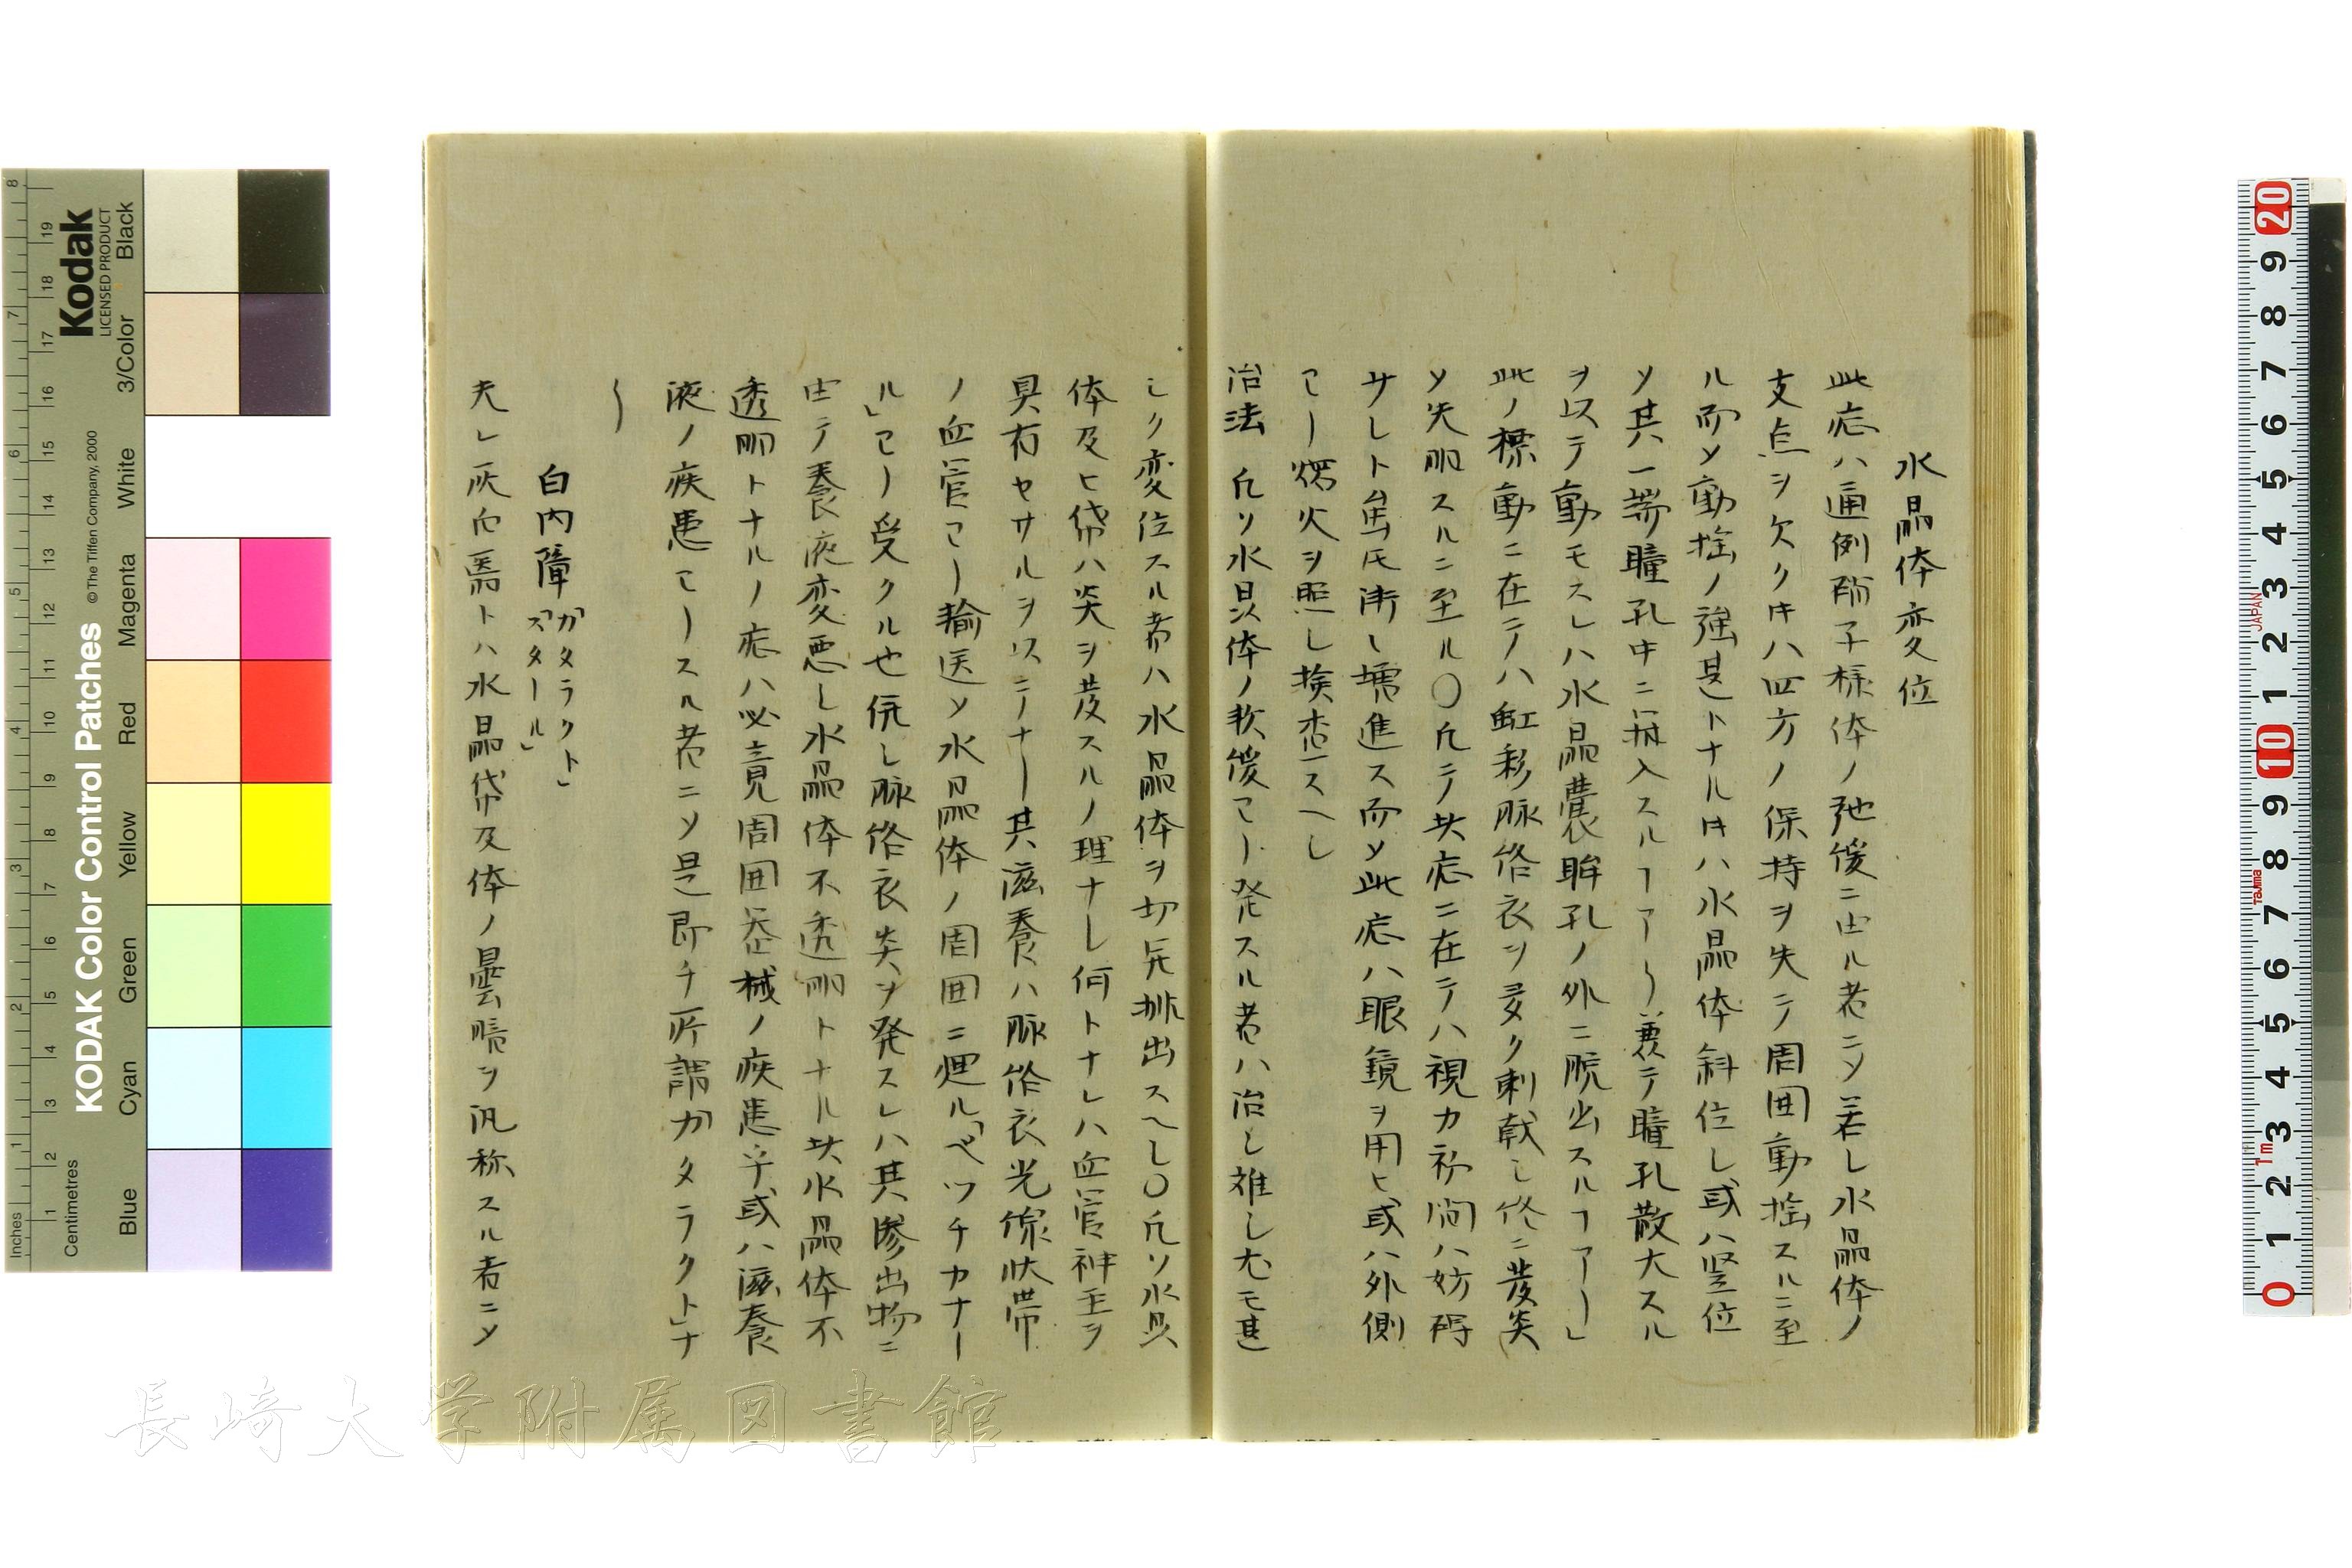 水晶体変位
此症ハ通例硝子様体ノ弛緩ニ由ル者ニㄨ若し水晶体ノ
支点ヲ欠クㄐハ四方ノ保持ヲ失テ周囲動揺スルニ至
ル而ㄨ動揺ノ強甚トナルㄐハ水晶体斜位し或ハ竪位
ㄨ其一端瞳孔中ニ挿入スルヿアリ兼テ瞳孔散大スル
ヲ以テ動モスレハ水晶嚢眸孔ノ外ニ脱出スルヿアリ」
此ノ標動ニ在テハ虹彩脉絡衣ヲ衝ク刺戟し終ニ発炎
ㄨ失明スルニ至ル〇凡テ此症ニ在テハ視力初間ハ妨碍
サレト眚氏漸し増進ス而ㄨ此症ハ眼鏡ヲ用ヒ或ハ外側
ヨリ燐火ヲ照し検査スヘし
治法 凡ソ水晶体ノ軟緩ヨリ発スル者ハ治し難し尤モ甚
しク変位スル者ハ水晶体ヲ切完排出スヘし〇凡ソ水晶
体及ヒ帒ハ炎ヲ発スルノ理ナし何トナレハ血管神圣ヲ
具有セサルヲ以テナリ其滋養ハ脉絡衣光線状帯
ノ血管ヨリ輸送ㄨ水晶体ノ周囲ニ運ル「ペッチカナー
ル」ヨリ受クル也併し脉絡衣炎ヲ発スレハ其滲出物ニ
由テ養液変悪し水晶体不透明トナル共水晶体不
透明トナルノ症ハ必竟周囲器械ノ疾患乎或ハ滋養
液ノ疾患ヨリスル者ニㄨ是即チ所謂カタラクト」ナ
リ
白内障 「カタラクト」
「スタール」
夫レ灰白翳トハ水晶帒及体ノ曇暗ヲ汎称スル者ニㄨ
Kodak
LICENSED PRODUCT
KODAK Color Control Patches
© The Tiffen Company, 2000
Inches
Centimetres
Blue
Cyan
Green
Yellow
Red
Magenta
White
3/Color
Black
長崎大学附属図書館
JAPAN
Tajima